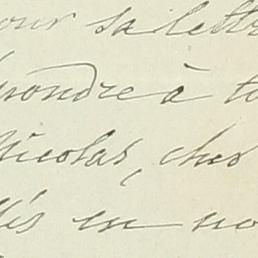 our sa lettre
pondre à to
Nicolas, cher
lés en no